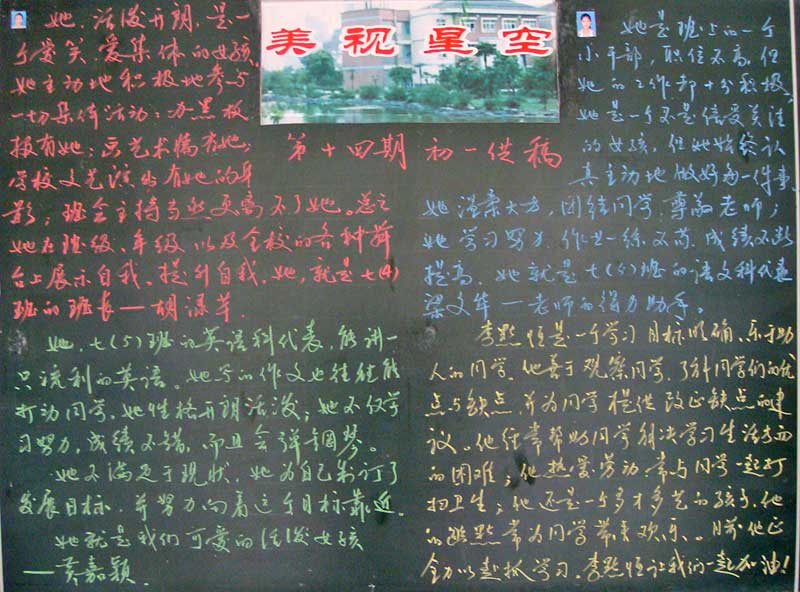 美视星空
第十四期 初一供稿
她,活泼开朗,是一
个爱笑、爱集体的女孩。
她主动地积极地参与
一切集体活动:办黑板
报有她;画艺术墙有她;
学校文艺演出有她的身
影;班会主持当然更离不了她。总之
她在班级、年级、以及全校的各种舞
台上展示自我、提升自我,她,就是七(4)
班的班长——胡
她,七(5)班的英语科代表,能讲一
口流利的英语。她写的作文也往往能
打动同学,她性格开朗活泼;她不仅学
习努力,成绩不错,而且会弹钢琴。
她不满足于现状,她为自己制订了
发展目标,并努力向着这个目标靠近。
她就是我们可爱的活泼女孩
——黄嘉颖
她是班上的一个
小干部,职位不高,但
她的工作却十分积极,
她是一个不是倍受关注
的女孩,但她始终认
真主动地做好每一件事,
她温柔大方,团结同学,尊敬老师;
她学习努力,作业一丝不苟,成绩不断
提高,她就是七(5)班的语文科代表
梁文华——老师的得力助手。
李点恒是一个学习目标明确、乐于助
人的同学。他善于观察同学,了解同学们的优
点与缺点,并为同学提供改正缺点的建
议。他经常帮助同学解决学习生活方面
的困难;他热爱劳动,常与同学一起打
扫卫生;他还是一个多才多艺的孩子,他
的幽默常为同学带来欢乐。目前他正
全力以赴抓学习,李点恒让我们一起加油!